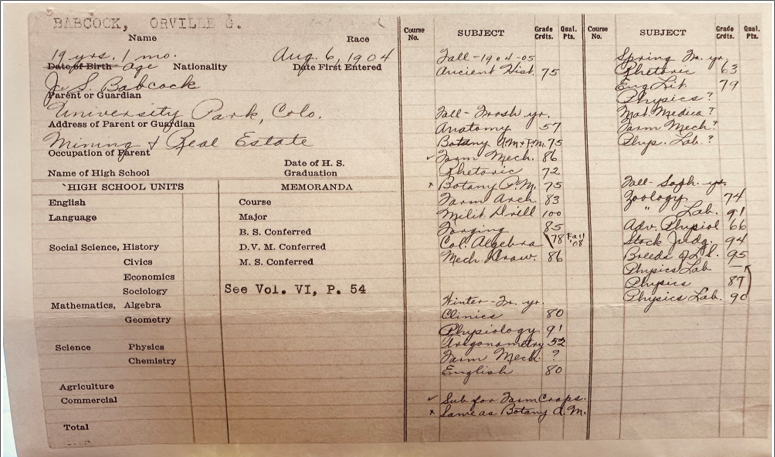 BABCOCK, ORVILLE G.
Name
Race
19 yrs, 1 mo.
Aug. 6, 1904
Date of Birth Age
Nationality
Date First Entered
J. S. Babcock
Parent or Guardian
University Park, Colo.
Address of Parent or Guardian
Mining & Real Estate
Occupation of Parent
Name of High School
Date of H. S. Graduation
HIGH SCHOOL UNITS
MEMORANDA
English
Language
Social Science, History
Civics
Economics
Sociology
Mathematics, Algebra
Geometry
Science Physics
Chemistry
Agriculture
Commercial
Total
Course
Major
B. S. Conferred
D.V. M. Conferred
M. S. Conferred
See Vol. VI, P. 54
Course No. SUBJECT Grade Crdts. Qual. Pts.
Fall-1904-05
Ancient Hist. 75
Fall-Frosh yr.
Anatomy 57
Botany A.M & P.M. 75
✓ Farm Mech. 86
Rhetoric 72
x Botany P.M. 75
Farm Arch 83
Milit Drill 100
Forging 85
Col. Algebra 78 Fall '08
Mech Draw. 86
Winter-Fr. yr.
Clinics 80
Physiology 91
Trigonometry 52
Farm Mech. ?
English 80
✓ Sub for Farm Crops.
x Same as Botany A.M.
Course No. SUBJECT Grade Crdts. Qual. Pts.
Spring Fr. yr.
Rhetoric 63
Eng Lit 79
Physics ?
Mat. Medica ?
Farm Mech ?
Phys. Lab. ?
Fall-Soph. yr.
Zoology 74
" Lab. 91
Adv. Physiol 66
Stock Judg. 94
Breeds of L.S. 95
Physics Lab —
Physics 87
Physics Lab. 90